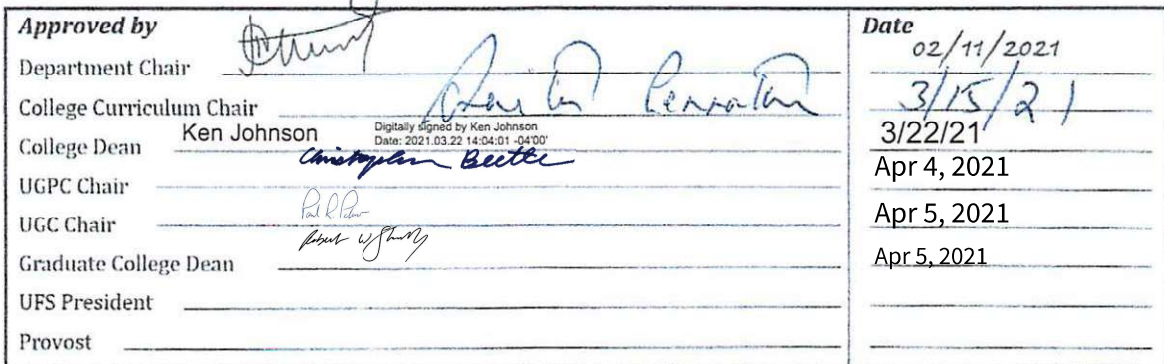 Approved by Date
Department Chair 02/11/2021
College Curriculum Chair 3/15/21
College Dean Ken Johnson Digitally signed by Ken Johnson 3/22/21
Date: 2021.03.22 14:04:01 -04'00'
UGPC Chair Christopher Beetle Apr 4, 2021
UGC Chair Apr 5, 2021
Graduate College Dean Robert W Apr 5, 2021
UFS President
Provost